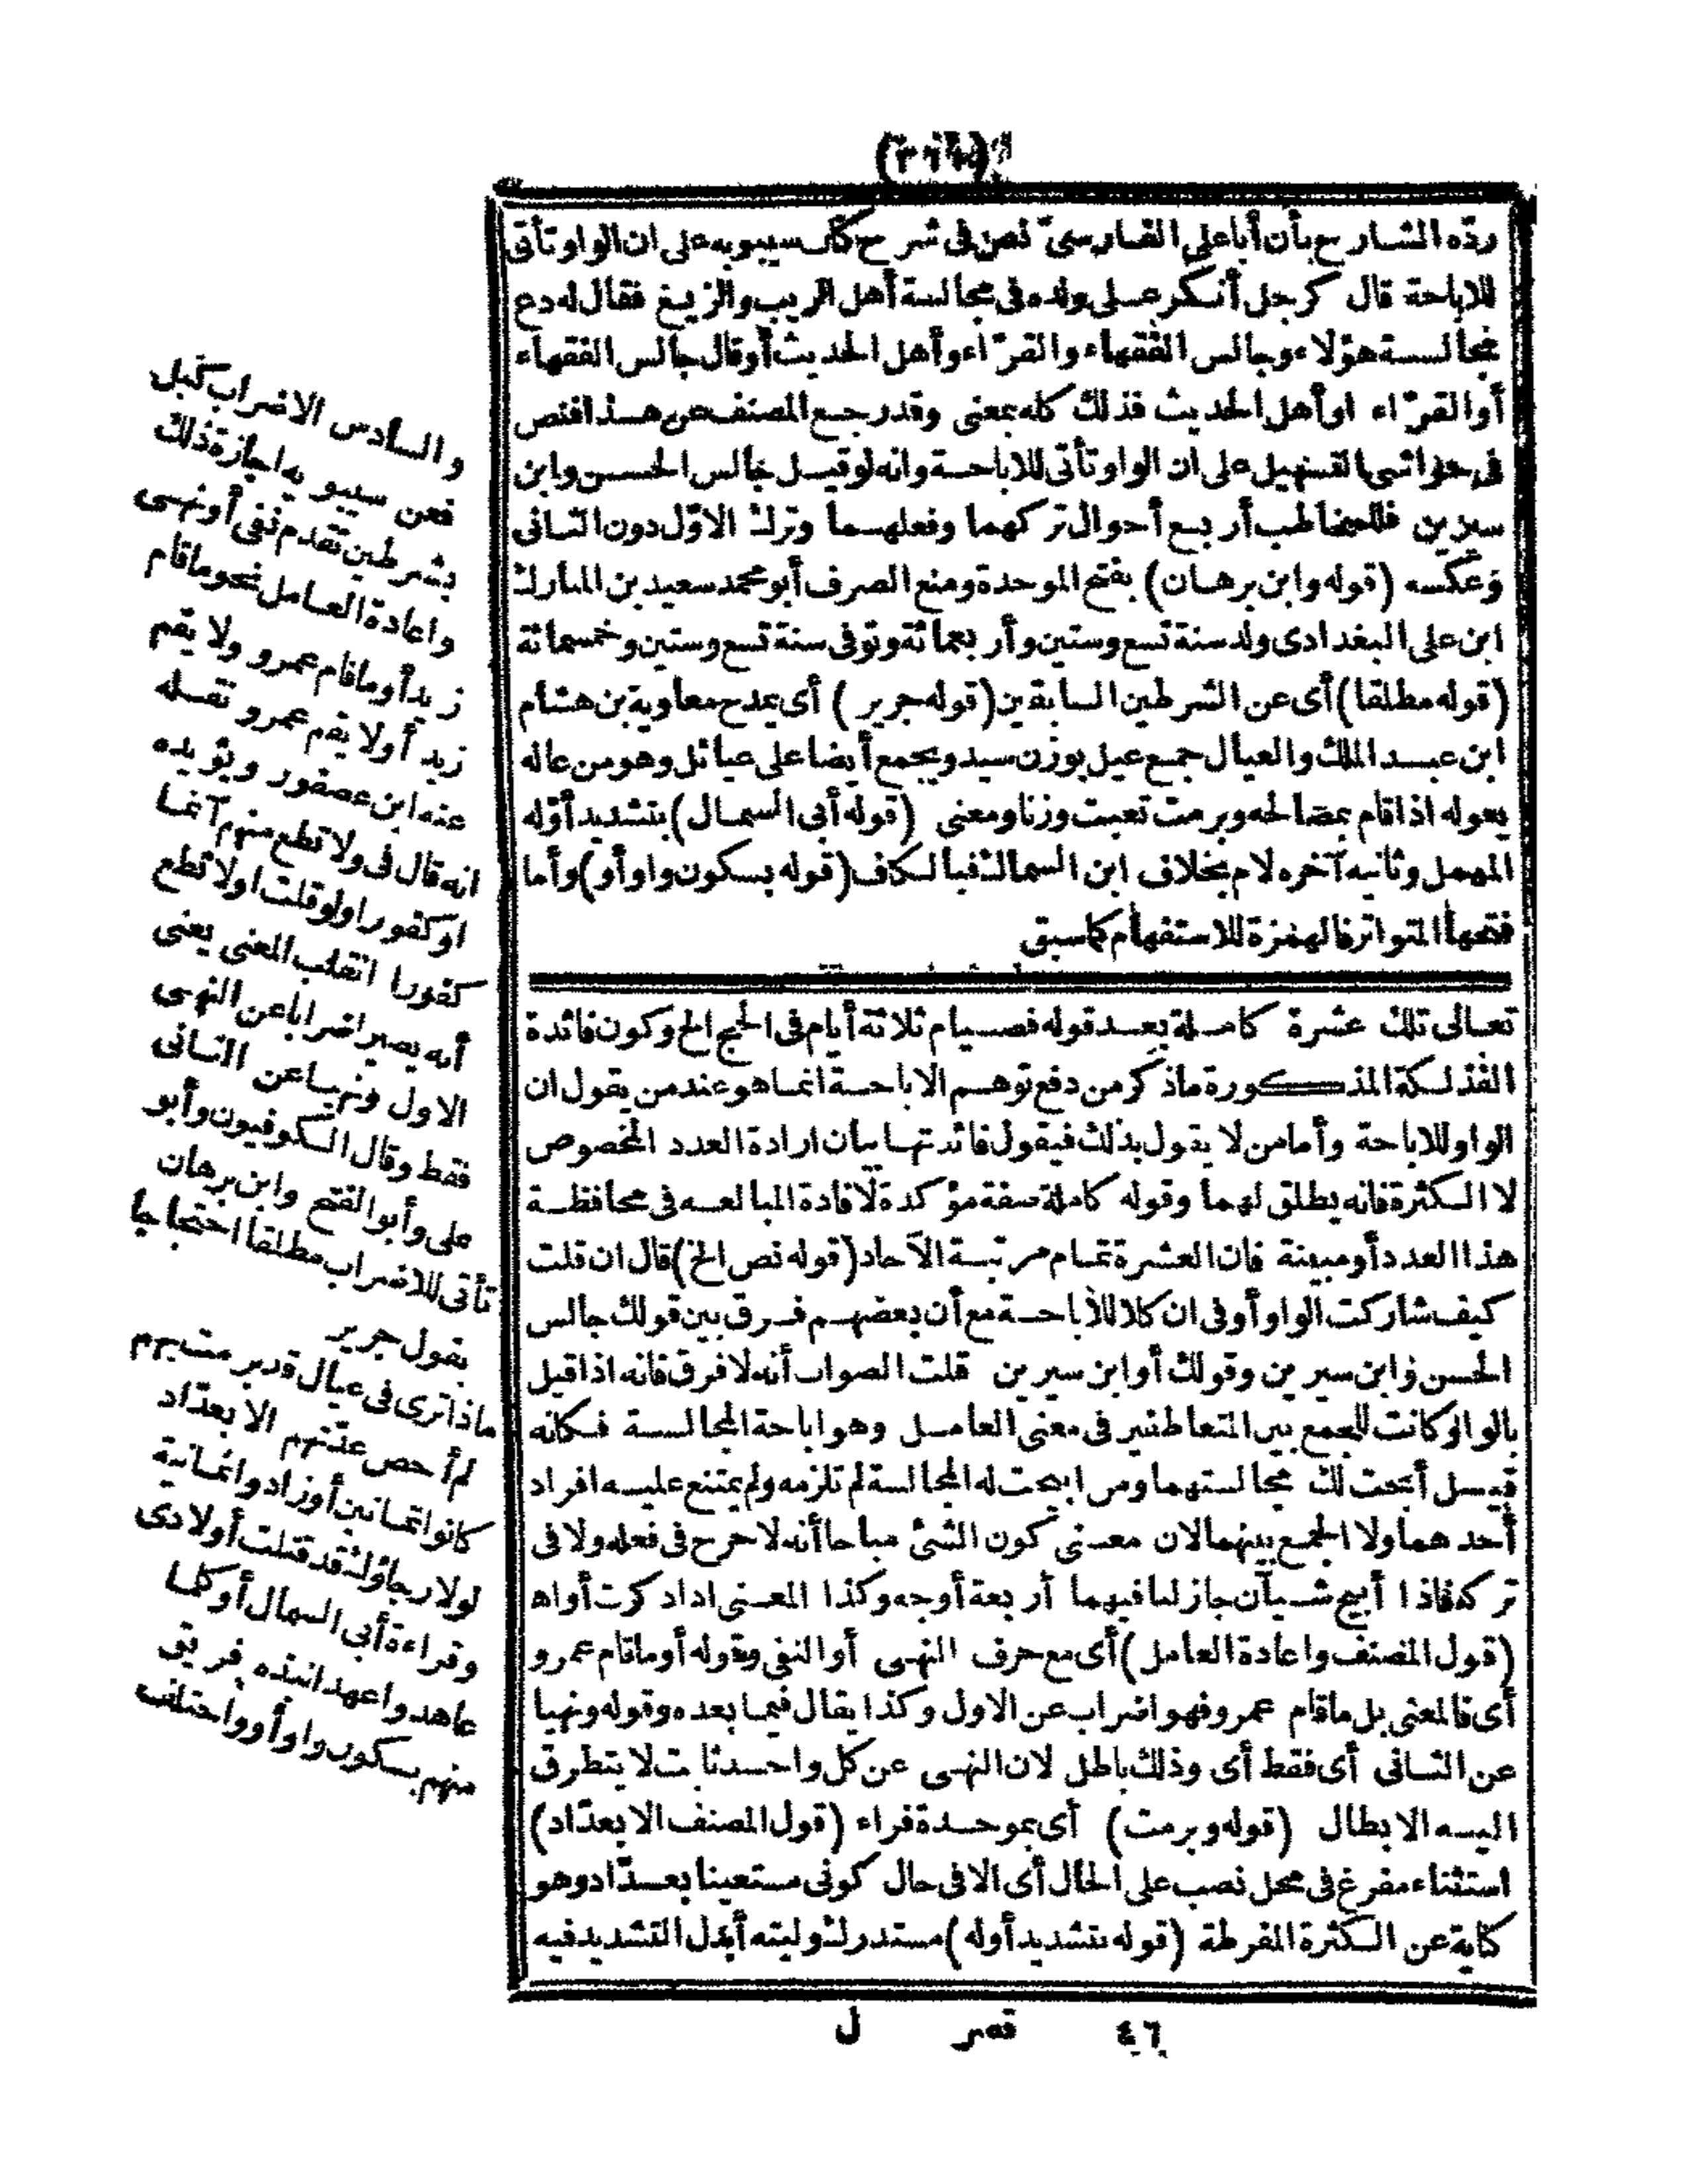 ردّه الشارح بأن أبا على الفارسىّ نص فى شرح كتاب سيبويه على ان الواو تأتى
للاباحة قال كرجل أنكر على ولده فى مجالسة أهل الريب والزيغ فقال له دع
مجالسة هؤلاء وجالس الفقهاء والقرّاء وأهل الحديث أو قال جالس الفقهاء
أو القرّاء او أهل الحديث فذلك كله بمعنى وقد رجع المصنف عن هذا فنص
فى حواشى التسهيل على ان الواو تأتى للاباحة وانه لو قيل جالس الحسن وابن
سيرين فللمخاطب أربع أحوال تركهما وفعلهما وترك الاوّل دون الثانى
وعكسه (قوله وابن برهان) بفتح الموحدة ومنع الصرف أبو محمد سعيد بن المبارك
ابن على البغدادى ولد سنة تسع وستين وأربعمائة وتوفى سنة تسع وستين وخمسمائة
(قوله مطلقا) أى عن الشرطين السابقين (قوله جرير) أى يمدح معاوية بن هشام
ابن عبد الملك والعيال جمع عيل بوزن سيد ويجمع أيضا على عيائل وهو من عاله
يعوله اذا قام بمصالحه وبرمت تعبت وزنا ومعنى (قوله أبى السمال) بتشديد أوّله
المهمل وثانيه آخره لام بخلاف ابن السماك فبالكاف (قوله بسكون واو أو) وأما
فتحها المتواتر فالهمزة للاستفهام كما سبق
تعالى تلك عشرة كاملة بعد قوله فصيام ثلاثة أيام فى الحج الخ وكون فائدة
الفذلكة المذكورة ما ذكر من دفع توهم الاباحة انما هو عند من يقول ان
الواو للاباحة وأما من لا يقول بذلك فيقول فائدتها بيان ارادة العدد المخصوص
لا الكثرة فانه يطلق لهما وقوله كاملة صفة مؤكدة لافادة المبالغه فى محافظة
هذا العدد أو مبينة فان العشرة تمام مرتبة الآحاد (قوله نص الخ) قال ان قلت
كيف شاركت الواو أو فى ان كلا للأباحة مع أن بعضهم فرق بين قولك جالس
الحسن وابن سيرين وقولك أو ابن سيرين قلت الصواب أنه لا فرق فانه اذا قيل
بالواو كانت للجمع بين المتعاطفين فى معنى العامل وهو اباحة المجالسة فكانه
قيل أبحت لك مجالستهما ومن ابيحت له المجالسة لم تلزمه ولم يمتنع عليه افراد
أحدهما ولا الجمع بينهما لان معنى كون الشئ مباحا أنه لا حرج فى فعله ولا فى
تركه فاذا أبيح شيآن جاز لنا فيهما أربعة أوجه وكذا المعنى اذا ذكرت أو اه
(قول المصنف واعادة العامل) أى مع حرف النهى أو النفى وقوله أو ما قام عمرو
أى فالمعنى بل ما قام عمرو فهو اضراب عن الاول وكذا يقال فيما بعده وقوله ونهيا
عن الثانى أى فقط أى وذلك باطل لان النهى عن كل واحد ثابت لا يتطرق
اليه الابطال (قوله وبرمت) أى بموحدة فراء (قول المصنف الا بعدّاد)
استثناء مفرغ فى محل نصب على الحال أى الا فى حال كونى مستعينا بعدّاد وهو
كناية عن الكثرة المفرطة (قوله بتشديد أوله) مستدرك وليته أبدل التشديد فيه
٤٦ قصر ل
والسادس الاضراب كبل
فعن سيبويه اجازة ذلك
بشرطين تقدم نفى أو نهى
واعادة العامل نحو ما قام
زيد أو ما قام عمرو ولا يقم
زيد أو لا يقم عمرو نقله
عنه ابن عصفور ويؤيده
انه قال فى ولا تطع منهم آثما
او كفورا ولو قلت اولا تطع
كفورا انقلب المعنى يعنى
أنه يصير اضرابا عن النهى
الاول ونهيا عن الثانى
فقط وقال الكوفيون وأبو
على وأبو الفتح وابن برهان
تأتى للاضراب مطلقا احتجاجا
بقول جرير
ماذا ترى فى عيال قد برمت بهم
لم أحص عدّتهم الا بعدّاد
كانوا ثمانين أو زادوا ثمانية
لولا رجاؤك قد قتلت أولادى
وقراءة أبى السمال أو كلما
عاهدوا عهدا نبذه فريق
منهم بسكون واو أو واختلف